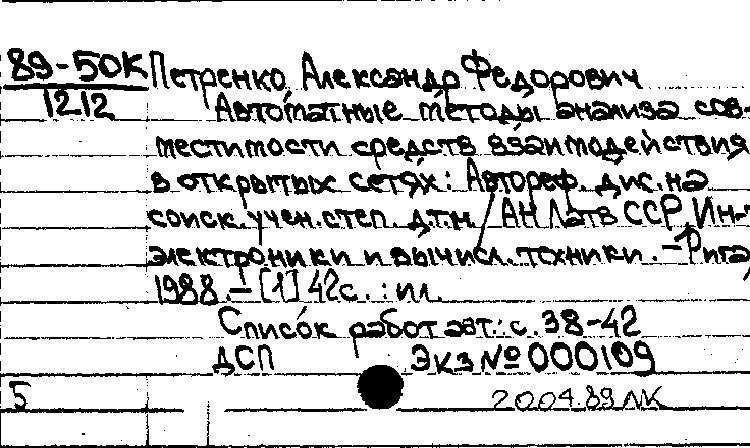 89-50К Петренко, Александр Федорович
1212 Автоматные методы анализа сов-
местимости средств взаимодействия
в открытых сетях: Автореф. дис. на
соиск. учен. степ. д.т.н. / АН Латв ССР, Ин-т
электроники и вычисл. техники. - Рига,
1988. - [1] 42с. : ил.
Список работ авт.: с. 38-42
ДСП Экз № 000109
5 20.04.89 ЛК